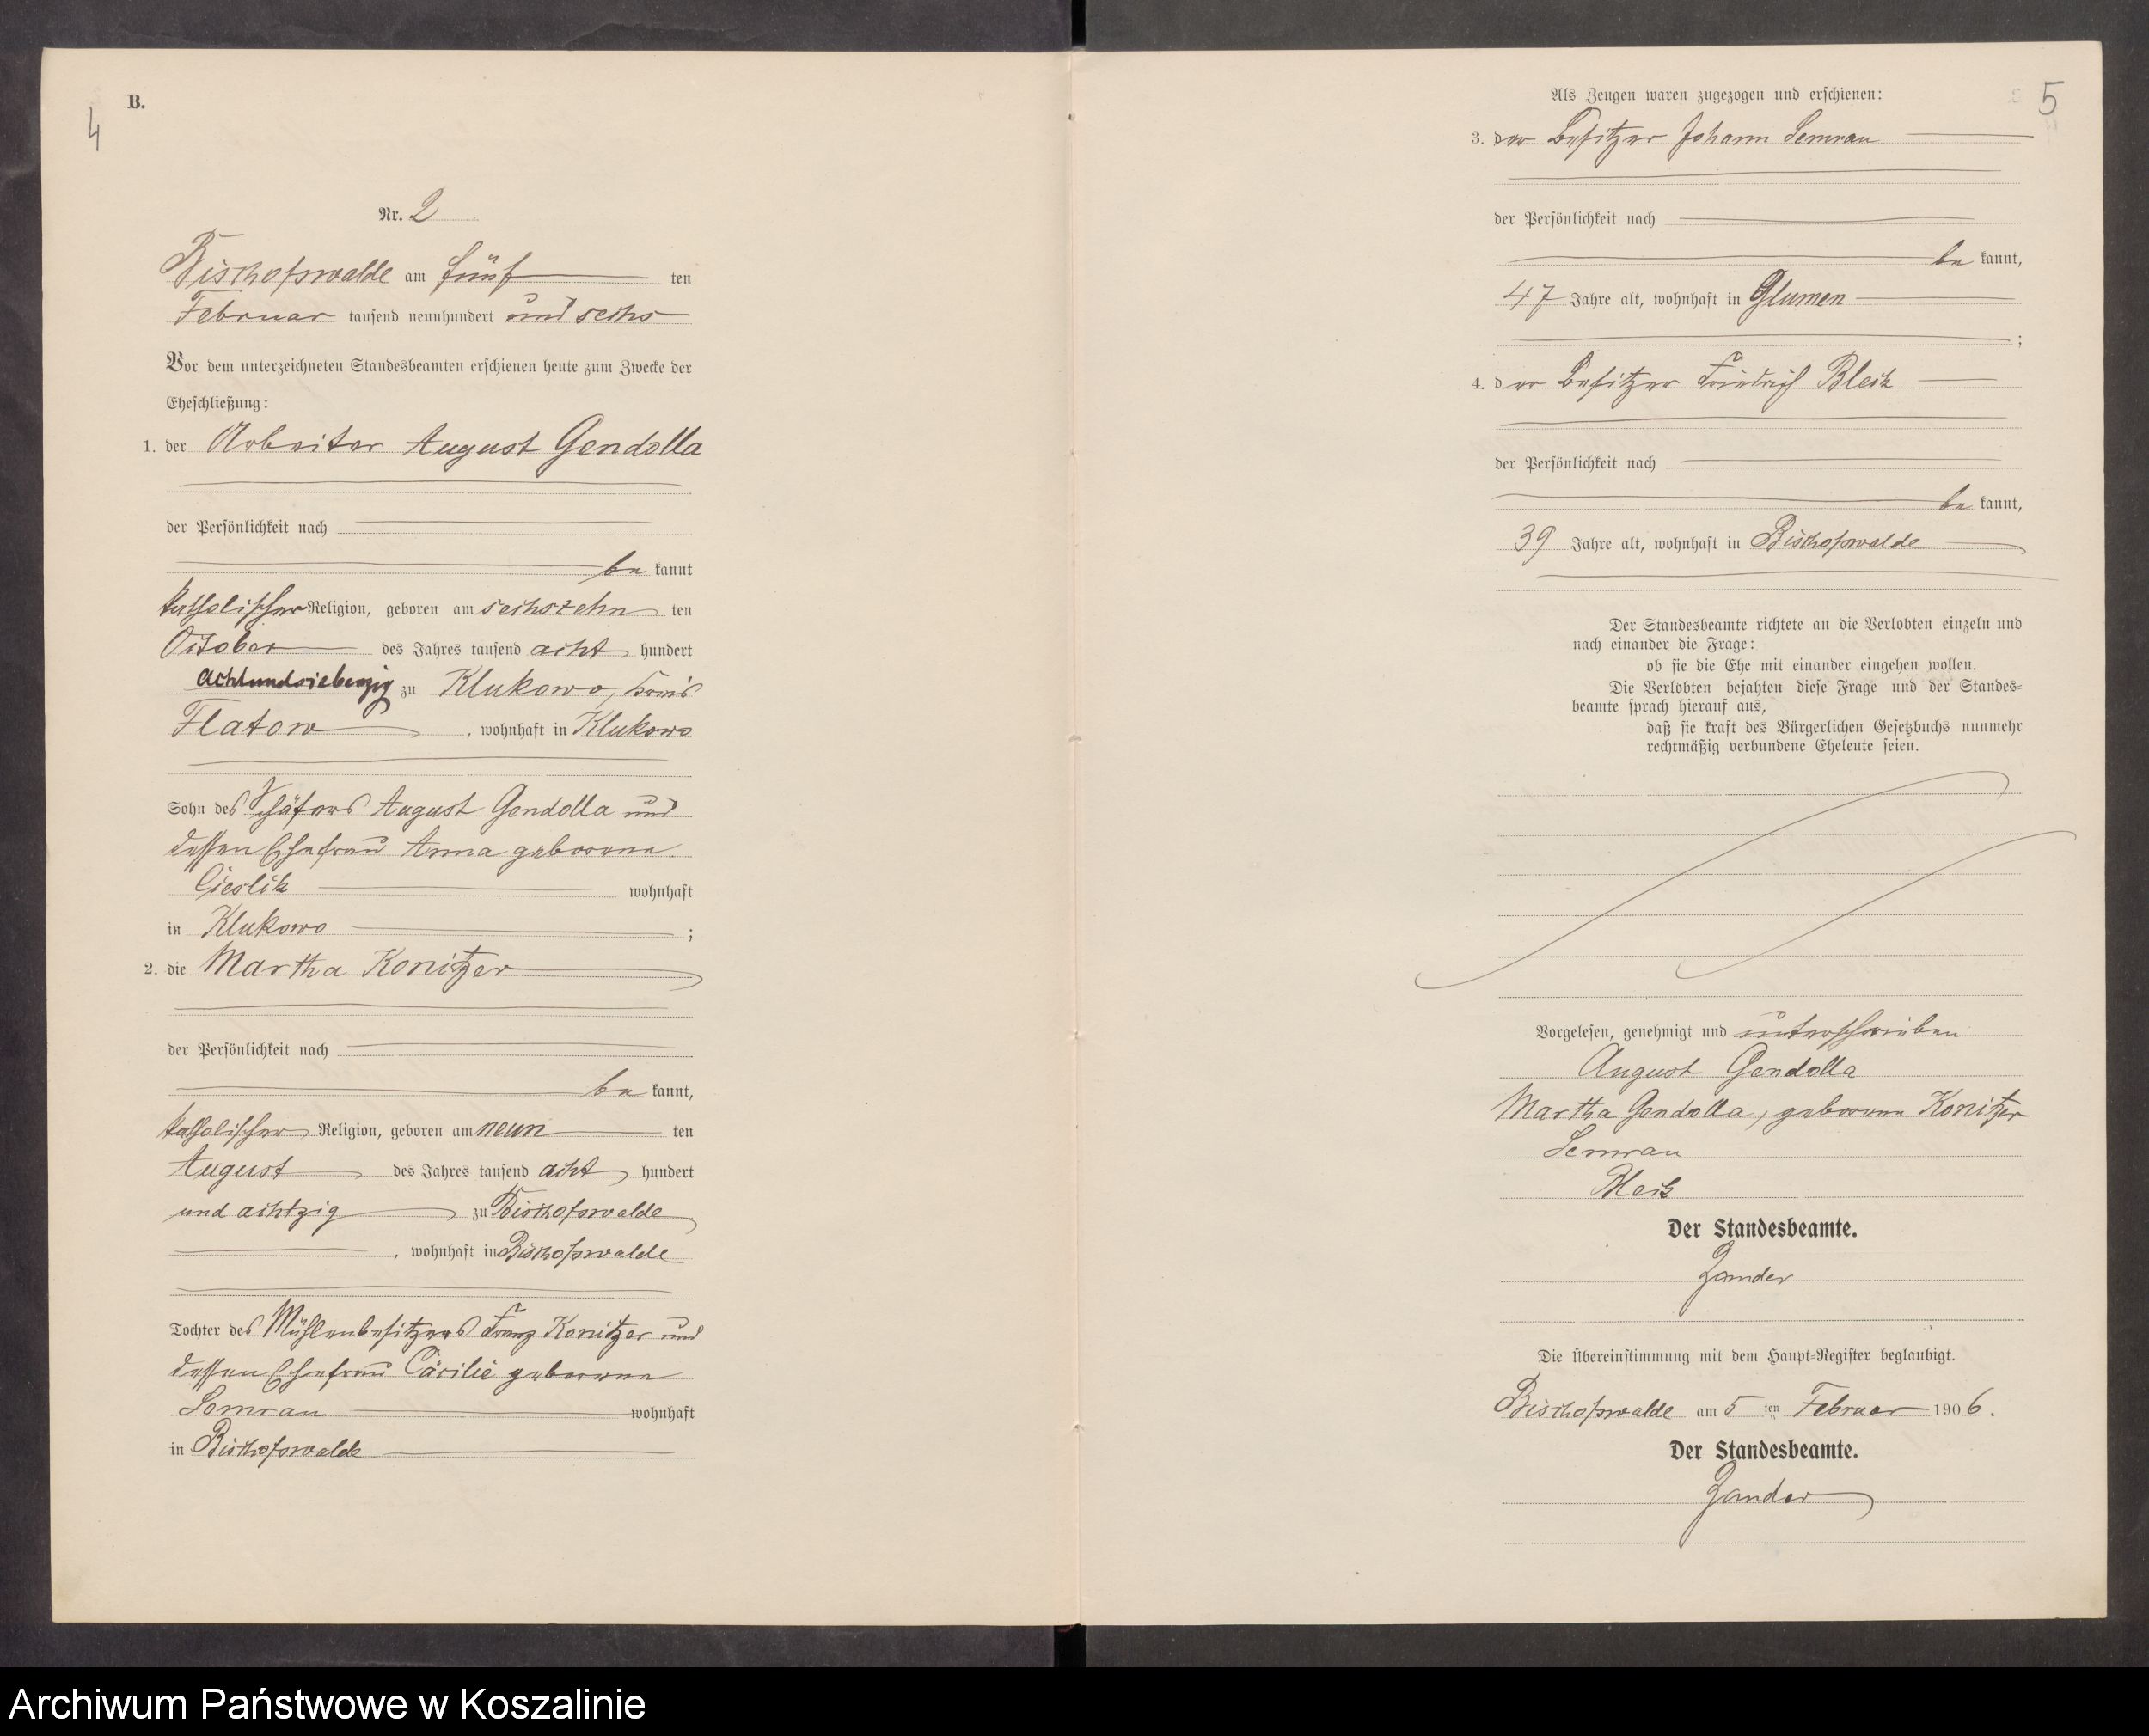 4
B.
Nr. 2
Bischofswalde am fünf ten
Februar tausend neunhundert und sechs
Vor dem unterzeichneten Standesbeamten erschienen heute zum Zwecke der
Eheschließung:
1. der Arbeiter August Gendolla
der Persönlichkeit nach
be kannt
katholischer Religion, geboren am sechszehn ten
October des Jahres tausend acht hundert
achtundsiebenzig zu Klukowo, Kreis
Flatow, wohnhaft in Klukowo
Sohn des Schäfers August Gendolla und
dessen Ehefrau Anna geborene
Cieslik wohnhaft
in Klukowo ;
2. die Martha Konitzer
der Persönlichkeit nach
be kannt,
katholischer Religion, geboren am neun ten
August des Jahres tausend acht hundert
und achtzig zu Bischofswalde
, wohnhaft in Bischofswalde
Tochter des Mühlenbesitzers Franz Konitzer und
dessen Ehefrau Cäcilie geborene
Semrau wohnhaft
in Bischofswalde
5
Als Zeugen waren zugezogen und erschienen:
3. der Besitzer Johann Semrau
der Persönlichkeit nach
be kannt,
47 Jahre alt, wohnhaft in Glumen
;
4. der Besitzer Friedrich Bleck
der Persönlichkeit nach
be kannt,
39 Jahre alt, wohnhaft in Bischofswalde
Der Standesbeamte richtete an die Verlobten einzeln und
nach einander die Frage:
ob sie die Ehe mit einander eingehen wollen.
Die Verlobten bejahten diese Frage und der Standes-
beamte sprach hierauf aus,
daß sie kraft des Bürgerlichen Gesetzbuchs nunmehr
rechtmäßig verbundene Eheleute seien.
Vorgelesen, genehmigt und unterschrieben
August Gendolla
Martha Gendolla, geborene Konitzer
Semrau
Bleck
Der Standesbeamte.
Zander
Die Übereinstimmung mit dem Haupt-Register beglaubigt.
Bischofswalde am 5 ten Februar 1906.
Der Standesbeamte.
Zander
Archiwum Państwowe w Koszalinie